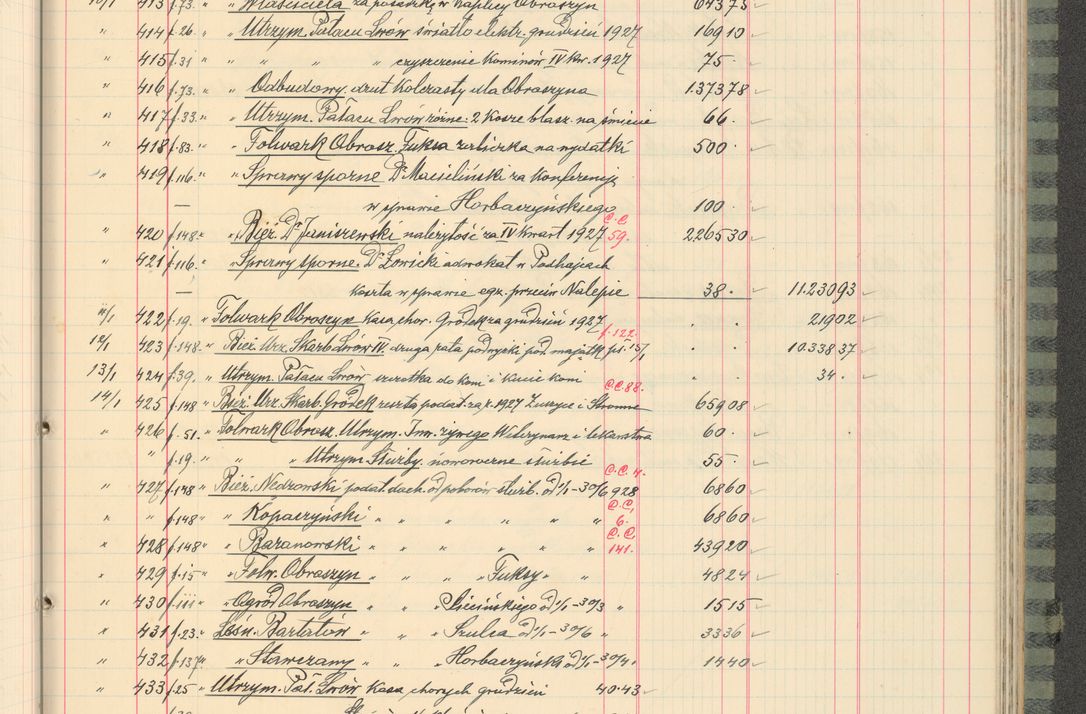 10/1 413 f.73. " Właściciela za posadzkę w kaplicy Obroszyn 64375
" 414 f.26. " Utrzym. Pałacu Lwów światło elektr. grudzień 1927 16910
" 415 f.31 " " " " czyszczenie kominów IV kw. 1927 75
" 416 f.73. " Odbudowy drut kolczasty dla Obroszyna 1.37378
" 417 f.33. " Utrzym. Pałacu Lwów różne: 2 kosze blasz. na śmiecie 66.
" 418 f.83. " Folwark Obrosz. Fuksa zaliczka na wydatki 500
" 419 f.116. " Sprawy sporne Dr Macieliński za konferencję
— w sprawie Horbaczyńskiego 100
" 420 f.148. " Bież. Dr Janiszewski należytość za IV kwart 1927 C.C. 59. 226530
" 421 f.116. " Sprawy sporne: Dr Łowicki adwokat w Podhajcach
— koszta w sprawie egz. przeciw Nalepie 38. 11.23093
11/1 422 f.19. " Folwark Obroszyn Kasa chor. Gródek za grudzień 1927 . . 21902
12/1 423 f.148. " Bież. Urz. Skarb. Lwów IV. druga rata podwyżki pod. majątk f.122. pł. 15/1 . . 10.33837
13/1 424 f.39. " Utrzym. Pałacu Lwów do koni i kucie koni . . 34.
14/1 425 f.148 " Bież. Urz. Skarb. Gródek reszta podat. za r. 1927 Zuszyce i Stronne C.C. 88. 65908
" 426 f.51. " Folwark Obrosz. Utrzym. Inw. żywego Weterynarz i lekarstwa 60.
" f.19. " " Utrzym. Służby noworoczne służbie 55.
" 427 f.148 " Bież. Nedzowski podat. doch. od poborów służb. od 1/1–30/6 928 C.C. 4. 6860
" " f.148 " " Kopaczyński " " " " " C.C. 6. 6860
" 428 f.148 " " Baranowski " " " " " C.C. 141. 43920
" 429 f.15 " " Folw. Obroszyn " " " Fuksy " " 4824
" 430 f.111 " " Ogród Obroszyn " " " Sicińskiego od 1/1–30/3 " 1515
" 431 f.23. " Leśn. Bartatów " " " Szulca od 1/1–30/6 " 3336
" 432 f.137 " " Stawczany " " " Horbaczyński od 1/1–30/4. 1440
" 433 f.25 " Utrzym. Pał. Lwów Kasa chorych grudzień 40.43